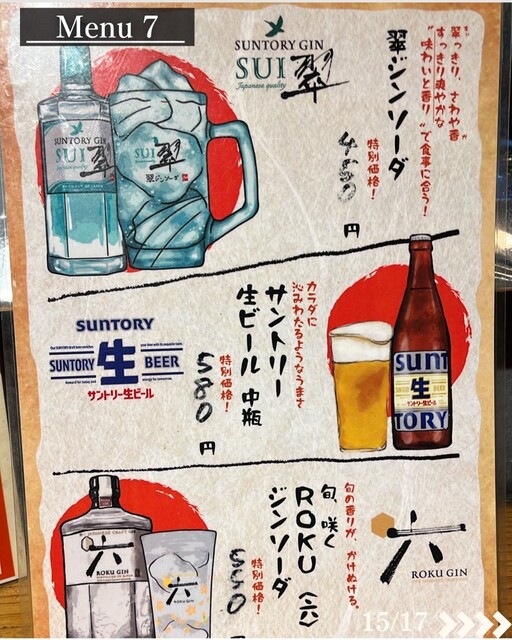 Menu 7
SUNTORY GIN
SUI 翠
Japanese quality
“翠っきり、さわや香”
すっきり爽やかな
“味わいと香り”で食事に合う!
翠ジンソーダ
特別価格!
円
SUNTORY GIN
SUI 翠
Japanese quality
SUI 翠
翠ジンソーダ
カラダに
沁みわたるようなうまさ
サントリー
生ビール 中瓶
特別価格!
580
円
SUNTORY
SUNTORY 生 BEER
Reward for today and energy for tomorrow.
サントリー生ビール
SUNTORY
生
サントリー生ビール
旬の香りが、かけぬける。
旬、咲く
ROKU〈六〉
ジンソーダ
特別価格!
550
六
ROKU GIN
JAPANESE CRAFT GIN
六
ROKU GIN
六
ROKU GIN
15/17